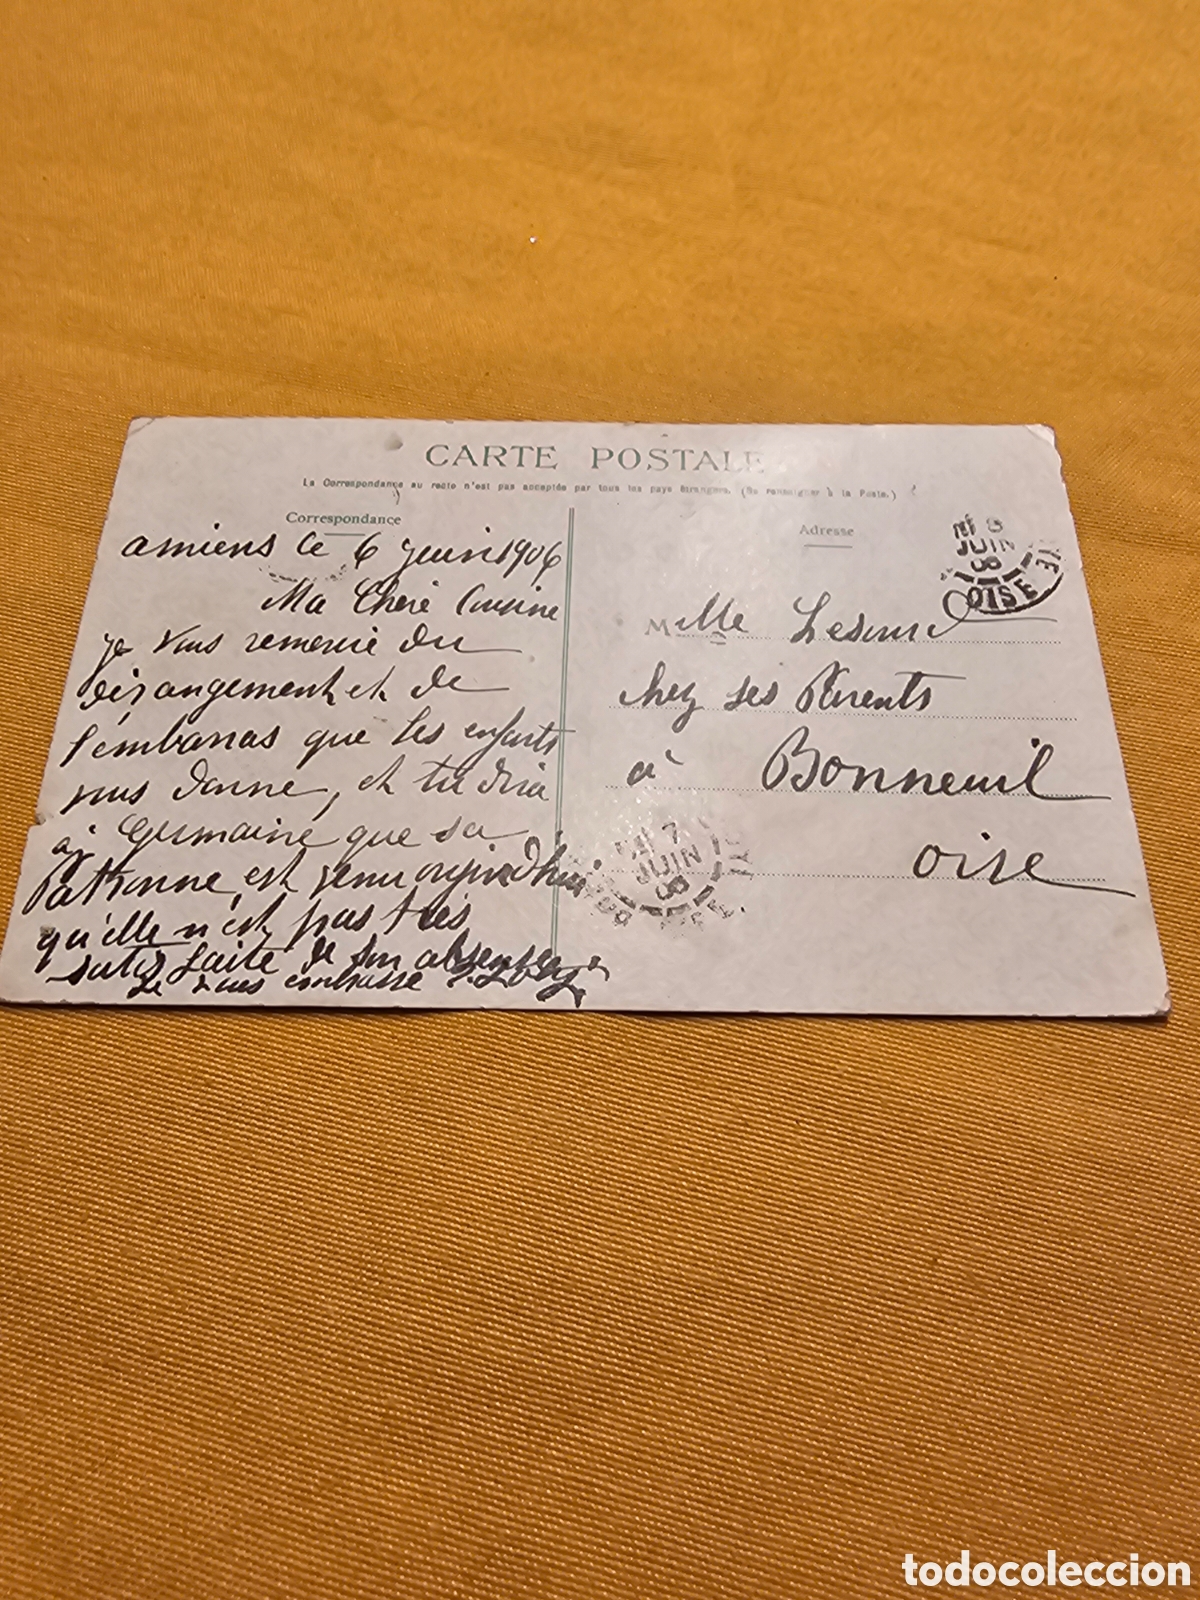 CARTE POSTALE
La Correspondance au recto n'est pas acceptée par tous les pays étrangers. (Se renseigner à la Poste.)
Correspondance
amiens le 6 juin 1906
Ma Cheré Cousine
je vous remercie du
dérangement et de
l'embarras que les enfants
vous donne, et tu dira
à Germaine que sa
Patronne est venu aujourd'hui
qu'elle n'est pas très
satisfaite de son absence
Je vous embrasse
Adresse
M Mlle Lesueur
chez ses Parents
à Bonneuil
oise
JUIN
OISE
7
JUIN
todocoleccion